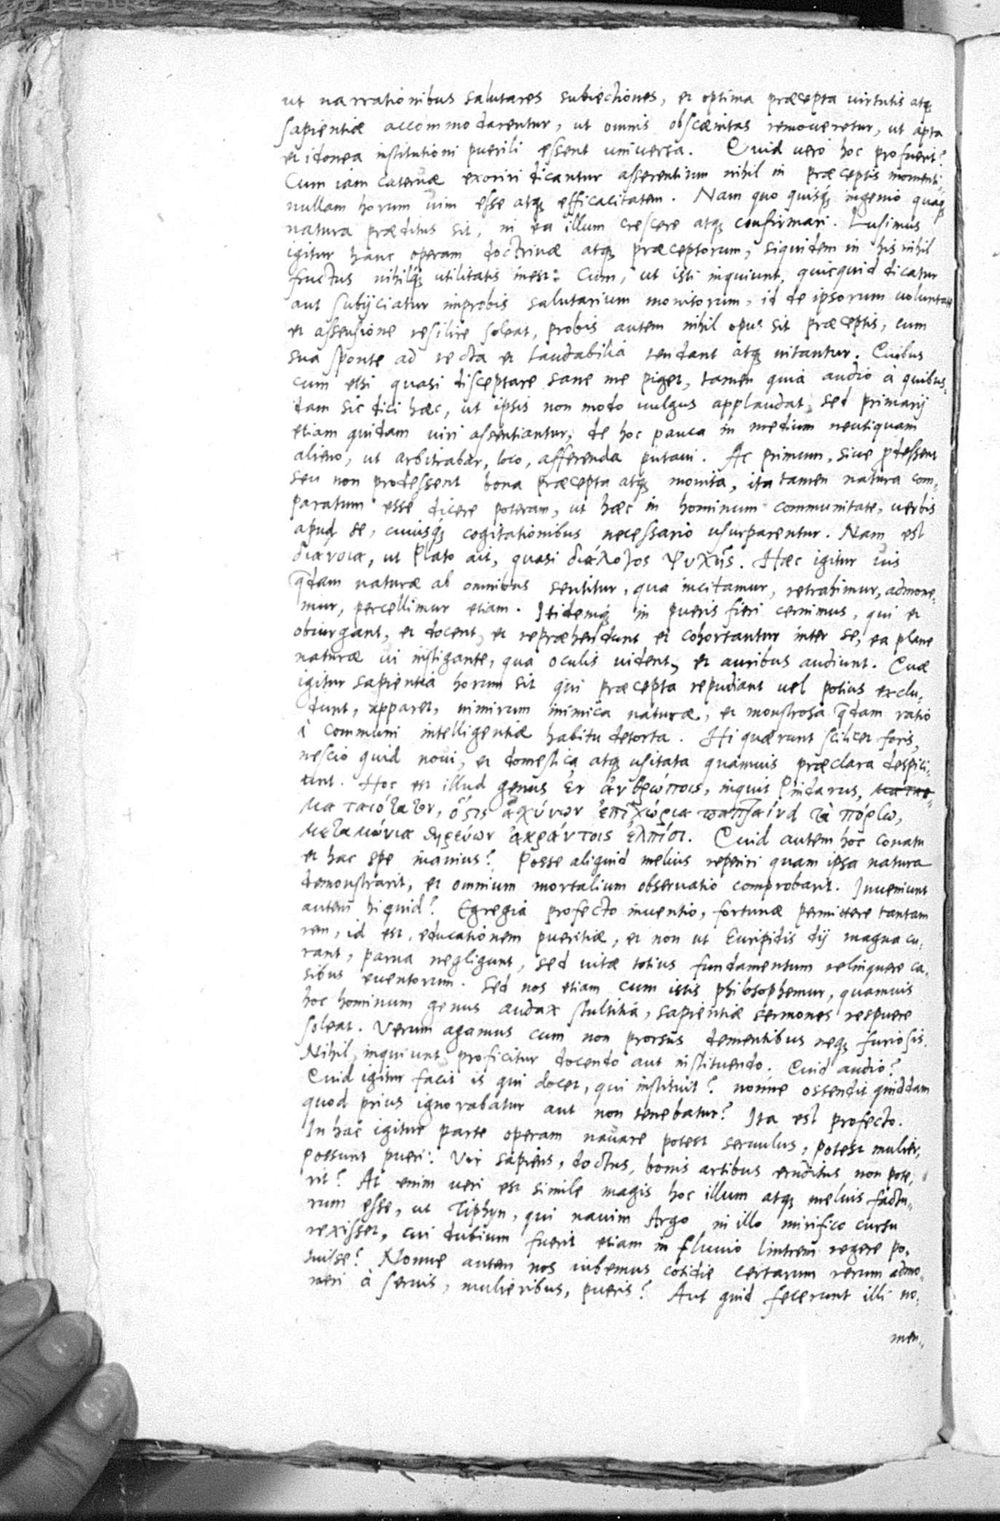 ut narrationibus salutares subiectiones, et optima præcepta virtutis atq;
sapientiæ accommodarentur, ut omnis obscænitas removeretur, ut apta
et idonea institutioni puerili essent universa. Quid vero hoc profuerit?
Cum iam catervæ exoriri dicantur asserentium nihil in præceptis momenti,
nullam horum vim esse atq; efficacitatem. Nam quo quisq; ingenio quaq;
natura præditus sit, in ea illum crescere atq; confirmari. Lusimus
igitur hanc operam doctrinæ atq; præceptorum, siquidem in his nihil
fructus nihilq; utilitatis inest: Cum, ut isti inquiunt, quicquid dicatur
aut subijciatur improbis salutarium monitorum, id de ipsorum voluntate
et assensione resilire soleat, probis autem nihil opus sit præceptis, cum
sua sponte ad recta et laudabilia tendant atq; nitantur. Quibus
cum etsi quasi disceptare sane me piget, tamen quia audio à quibus-
dam sic dici hæc, ut ipsis non modo vulgus applaudat, sed primarij
etiam quidam viri assentiantur, de hoc pauca in medium neutiquam
alieno, ut arbitrabar, loco, afferenda putavi. Ac primum, sive prodessent
seu non prodessent bona præcepta atq; monita, ita tamen natura com-
paratum esse dicere poteram, ut hæc in hominum communitate, verbis
apud se, cuiusq; cogitationibus necessario usurparentur. Nam est
διάνοια, ut Plato ait, quasi διάλογος ψυχῆς. Hæc igitur vis
quædam naturæ ab omnibus sentitur, qua incitamur, retrahimur, admone-
mur, percellimur etiam. Itidemq; in pueris fieri cernimus, qui et
obiurgant, et docent, et repræhendunt et cohortantur inter se, ea plane
naturæ vi instigante, qua oculis vident, et auribus audiunt. Quæ
igitur sapientia horum sit qui præcepta repudiant vel potius exclu-
dunt, apparet, nimirum inimica naturæ, et monstrosa quædam ratio
à communi intelligentiæ habitu detorta. Hi quærunt scilicet foris,
nescio quid novi, et domestica atq; usitata quamvis præclara despici-
unt. Hoc est illud genus ἐν ἀνθρώποις, inquit Pindarus,
ματαιότατον, ὅστις αἰσχύνων ἐπιχώρια παπταίνει τὰ πόρσω,
μεταμώνια θηρεύων ἀκράντοις ἐλπίσι. Quid autem hoc conatu
et hac spe inanius? Posse aliquid melius reperiri quam ipsa natura
demonstrarit, et omnium mortalium observatio comprobarit. Inveniunt
autem hi quid? Egregia profecto inventio, fortunæ permittere tantam
rem, id est, educationem pueritiæ, et non ut Euripidis dij magna cu-
rant, parva negligunt, sed vitæ totius fundamentum relinquere ca-
sibus eventorum. Sed nos etiam cum istis philosophemur, quamvis
hoc hominum genus audax stultitia, sapientiæ sermones respuere
soleat. Verum agamus cum non prorsus dementibus neq; furiosis.
Nihil, inquiunt, proficitur docendo aut instituendo. Quid audio?
Quid igitur facit is qui docet, qui instituit? nonne ostendit quiddam
quod prius ignorabatur aut non tenebatur? Ita est profecto.
In hac igitur parte operam navare potest servulus, potest mulier,
possunt pueri: Vir sapiens, doctus, bonis artibus eruditus non pote-
rit? At enim veri est simile magis hoc illum atq; melius factu-
rum esse, ut Tiphyn, qui navim Argo in illo mirifico cursu
rexisset, cui dubium fuerit etiam in fluvio lintrem regere po-
tuisse? Nonne autem nos iubemus cotidie certarum rerum admo-
neri à servis, mulieribus, pueris? Aut quid fecerunt illi no-
men-